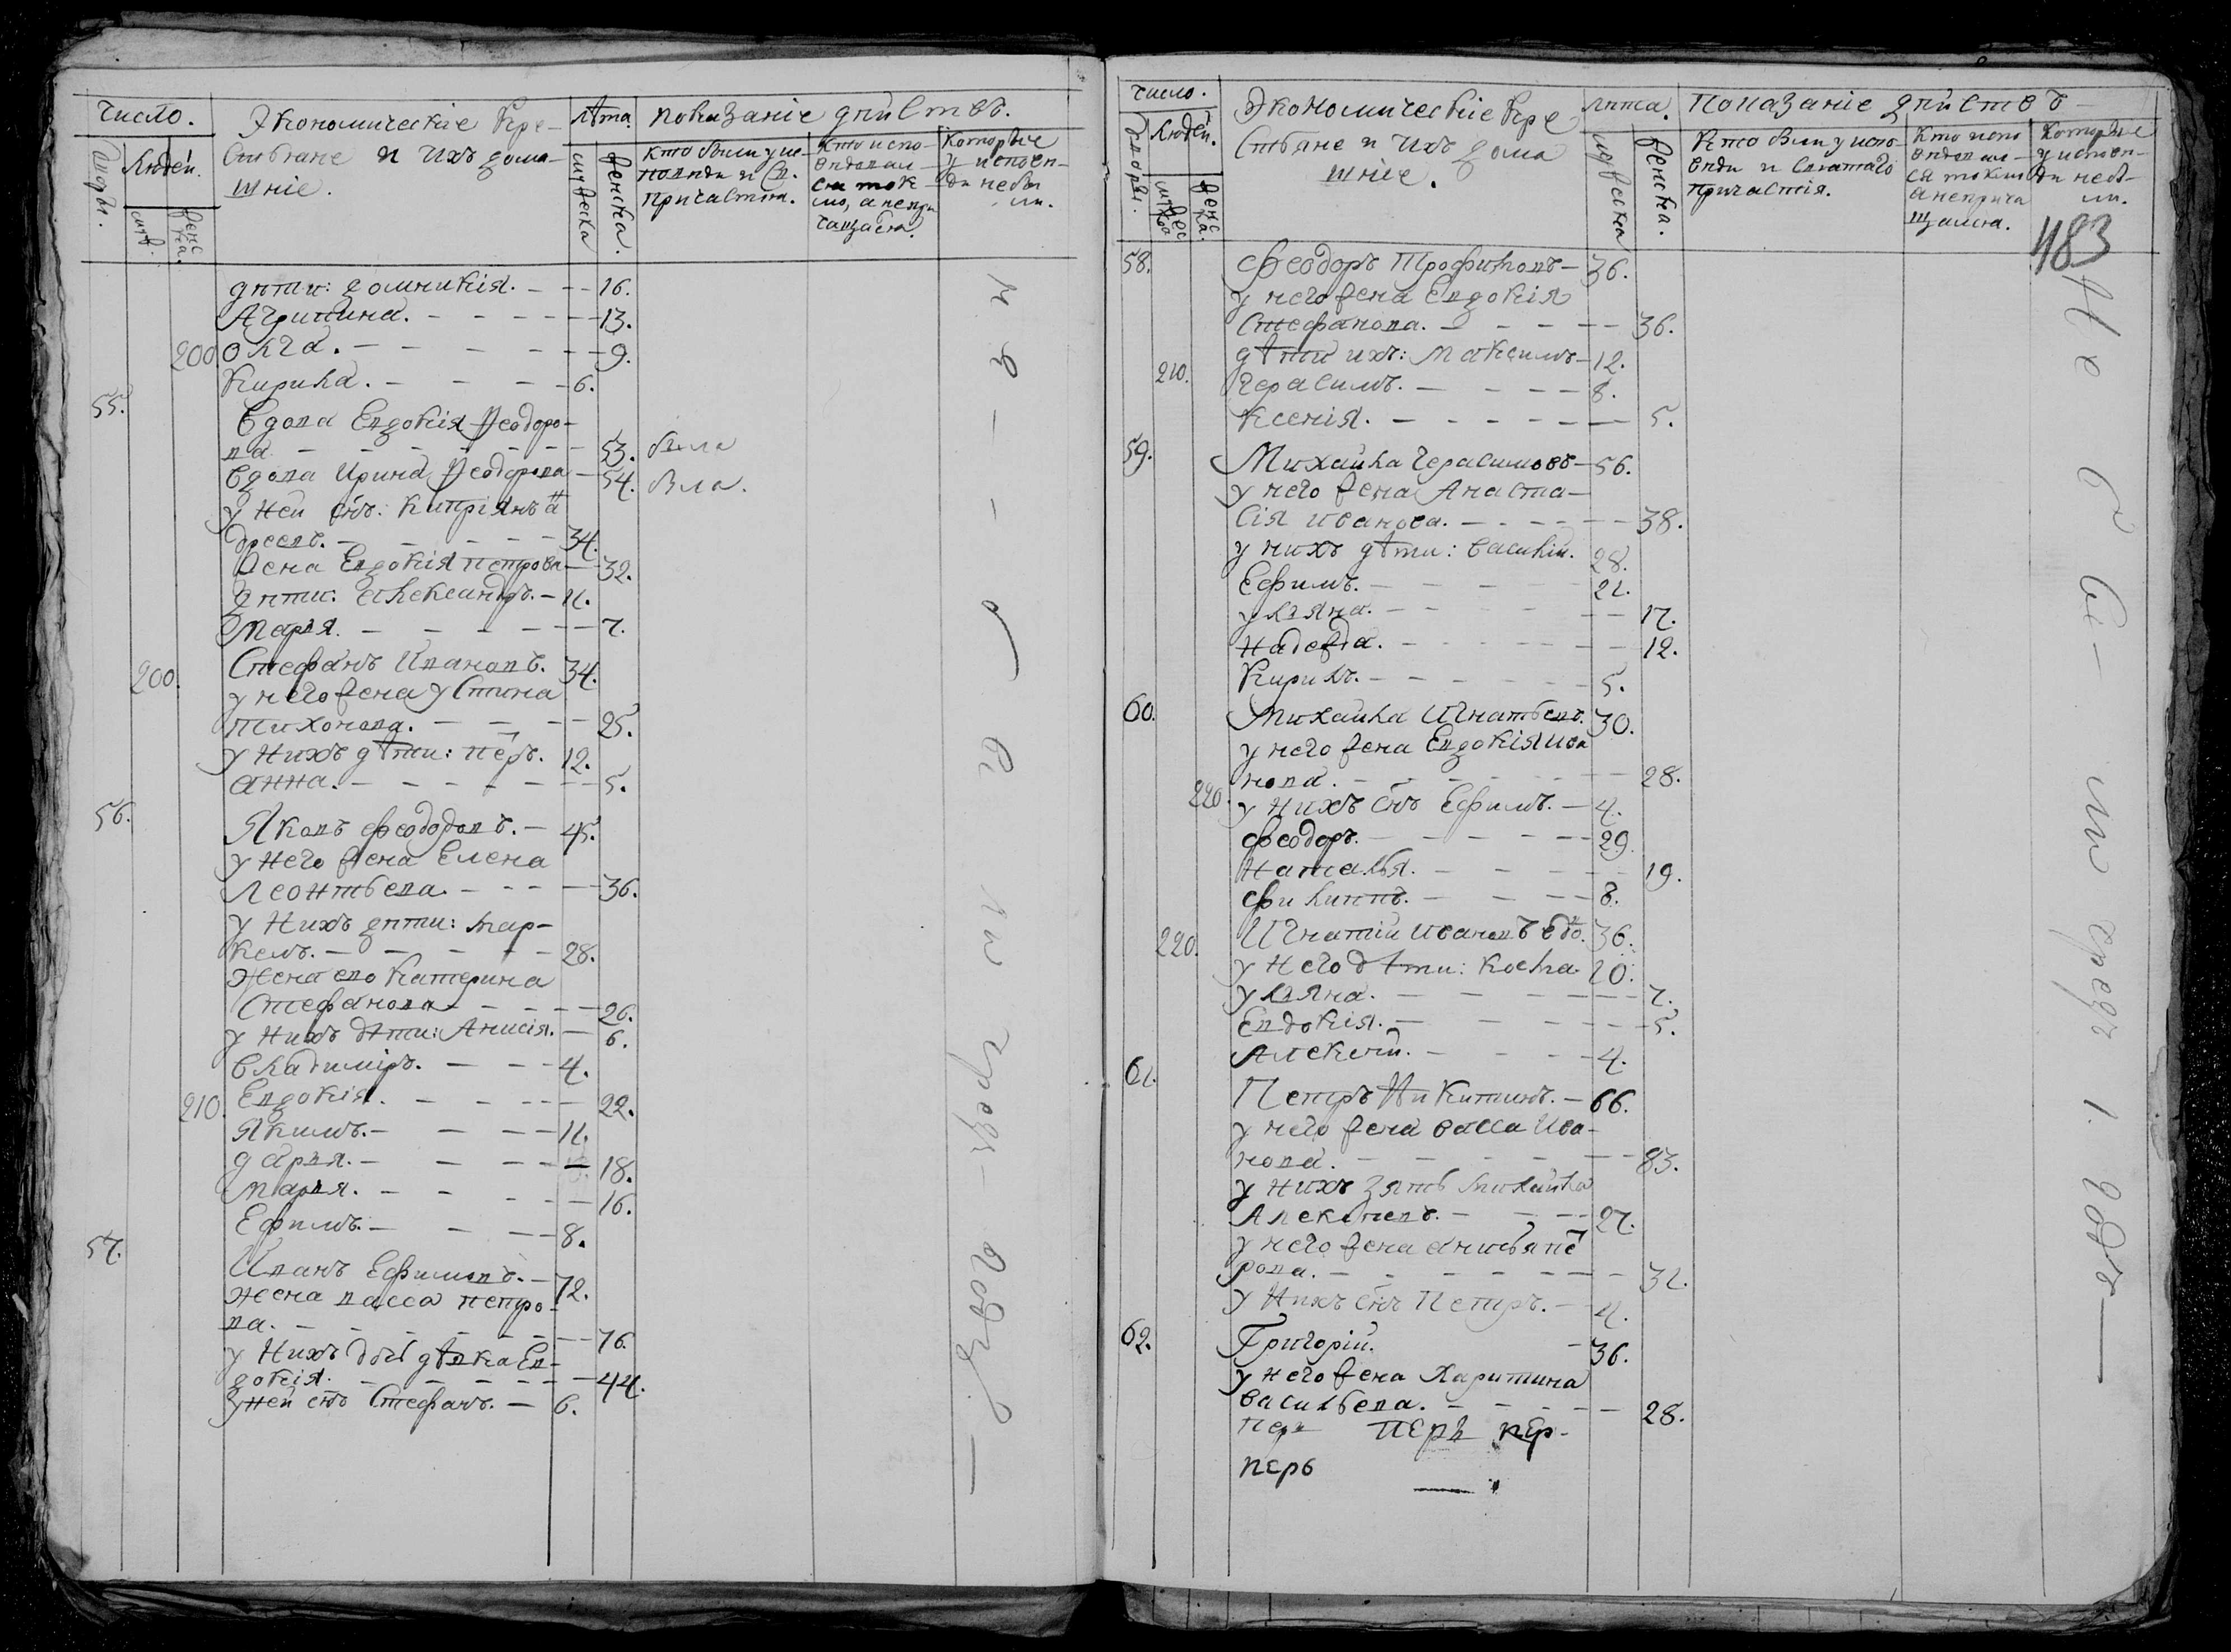 число.
Экономическіе кре-
стьяне и ихъ дома-
шніе.
лѣта.
показаніе дѣйствъ.
дворы.
Людей.
женска.
женска.
кто были у ис-
повѣди и св.
причастія.
Кто испо-
ведали-
ся ток-
мо, а непри
чащался.
Которые
у исповѣ-
ди небы
ли.
дѣти: домникія. 16.
Агрипина. 13.
200 Олга. 9.
Кирила. 6.
55.
Вдова Евдокія Ѳеодоро-
ва 53. была
Вдова Ирина Ѳеодорова 54. была.
у ней снъ: Кипріянъ Ан
дреевъ. 34.
Жена Евдокія петрова 32.
дѣти: Александръ. 11.
Марья. 7.
200. Стефанъ Ивановъ. 34.
у него жена устина
тихонова. 25.
у нихъ дѣти: петръ. 12.
анна. 5.
56.
Яковъ Феодоровъ. 45.
у него жена Елена
Леонтьева. 36.
у нихъ дѣти: мар-
келъ. 28.
Жена ево Катерина
Стефанова 26.
у нихъ дѣти: Анисія. 6.
владиміръ. 4.
210. Евдокія. 22.
Якимъ. 11.
дарья. 18.
марья. 16.
Ефимъ. 8.
57.
Иванъ Ефимовъ. 72.
жена васса петро-
ва. 76.
у нихъ дочь дѣвка Ев-
докія. 44.
у ней снъ Стефанъ. 6.
число.
Экономическіе кре
стьяне и ихъ дома
шніе.
лѣта.
Показаніе дѣйствъ
дворы.
Людей.
женс
ка.
мужеска
женска.
Кто были у испо-
веди и святаго
причастія.
Кто испо
ведали-
ся токмо
а неприча
щался.
Которые
у исповѣ-
ди небы-
ли.
483
58. Феодоръ Трофимовъ 36.
у него жена Евдокія
Стефанова. 36.
дѣти ихъ: Максимъ 12.
210. Герасимъ. 8.
Ксенія. 5.
59.
Михайла Герасимовъ 56.
у него жена Анаста-
сія иванова. 38.
у нихъ дѣти: василій. 28.
Ефимъ. 21.
ульяна. 17.
надежда. 12.
Кирилъ. 5.
60. Михайла Игнатьевъ. 30.
у него жена Евдокія Ива
нова. 28.
220. у нихъ снъ Ефимъ. 4.
феодоръ. 29.
наталья. 19.
филиппъ. 8.
220. Игнатій ивановъ вдо. 36.
у него дѣти: Косма. 10.
ульяна. 7.
Евдокія. 5.
Алексей. 4.
61.
Петръ Никитинъ. 66.
у него жена васса Ива-
нова. 83.
у нихъ зять михайла
Алексеевъ. 27.
у него жена анисья пет
рова. 31.
у нихъ снъ Петръ. 4.
62. Григорій. 36.
у него жена Харитина
васильева. 28.
перъ перъ пер-
перъ